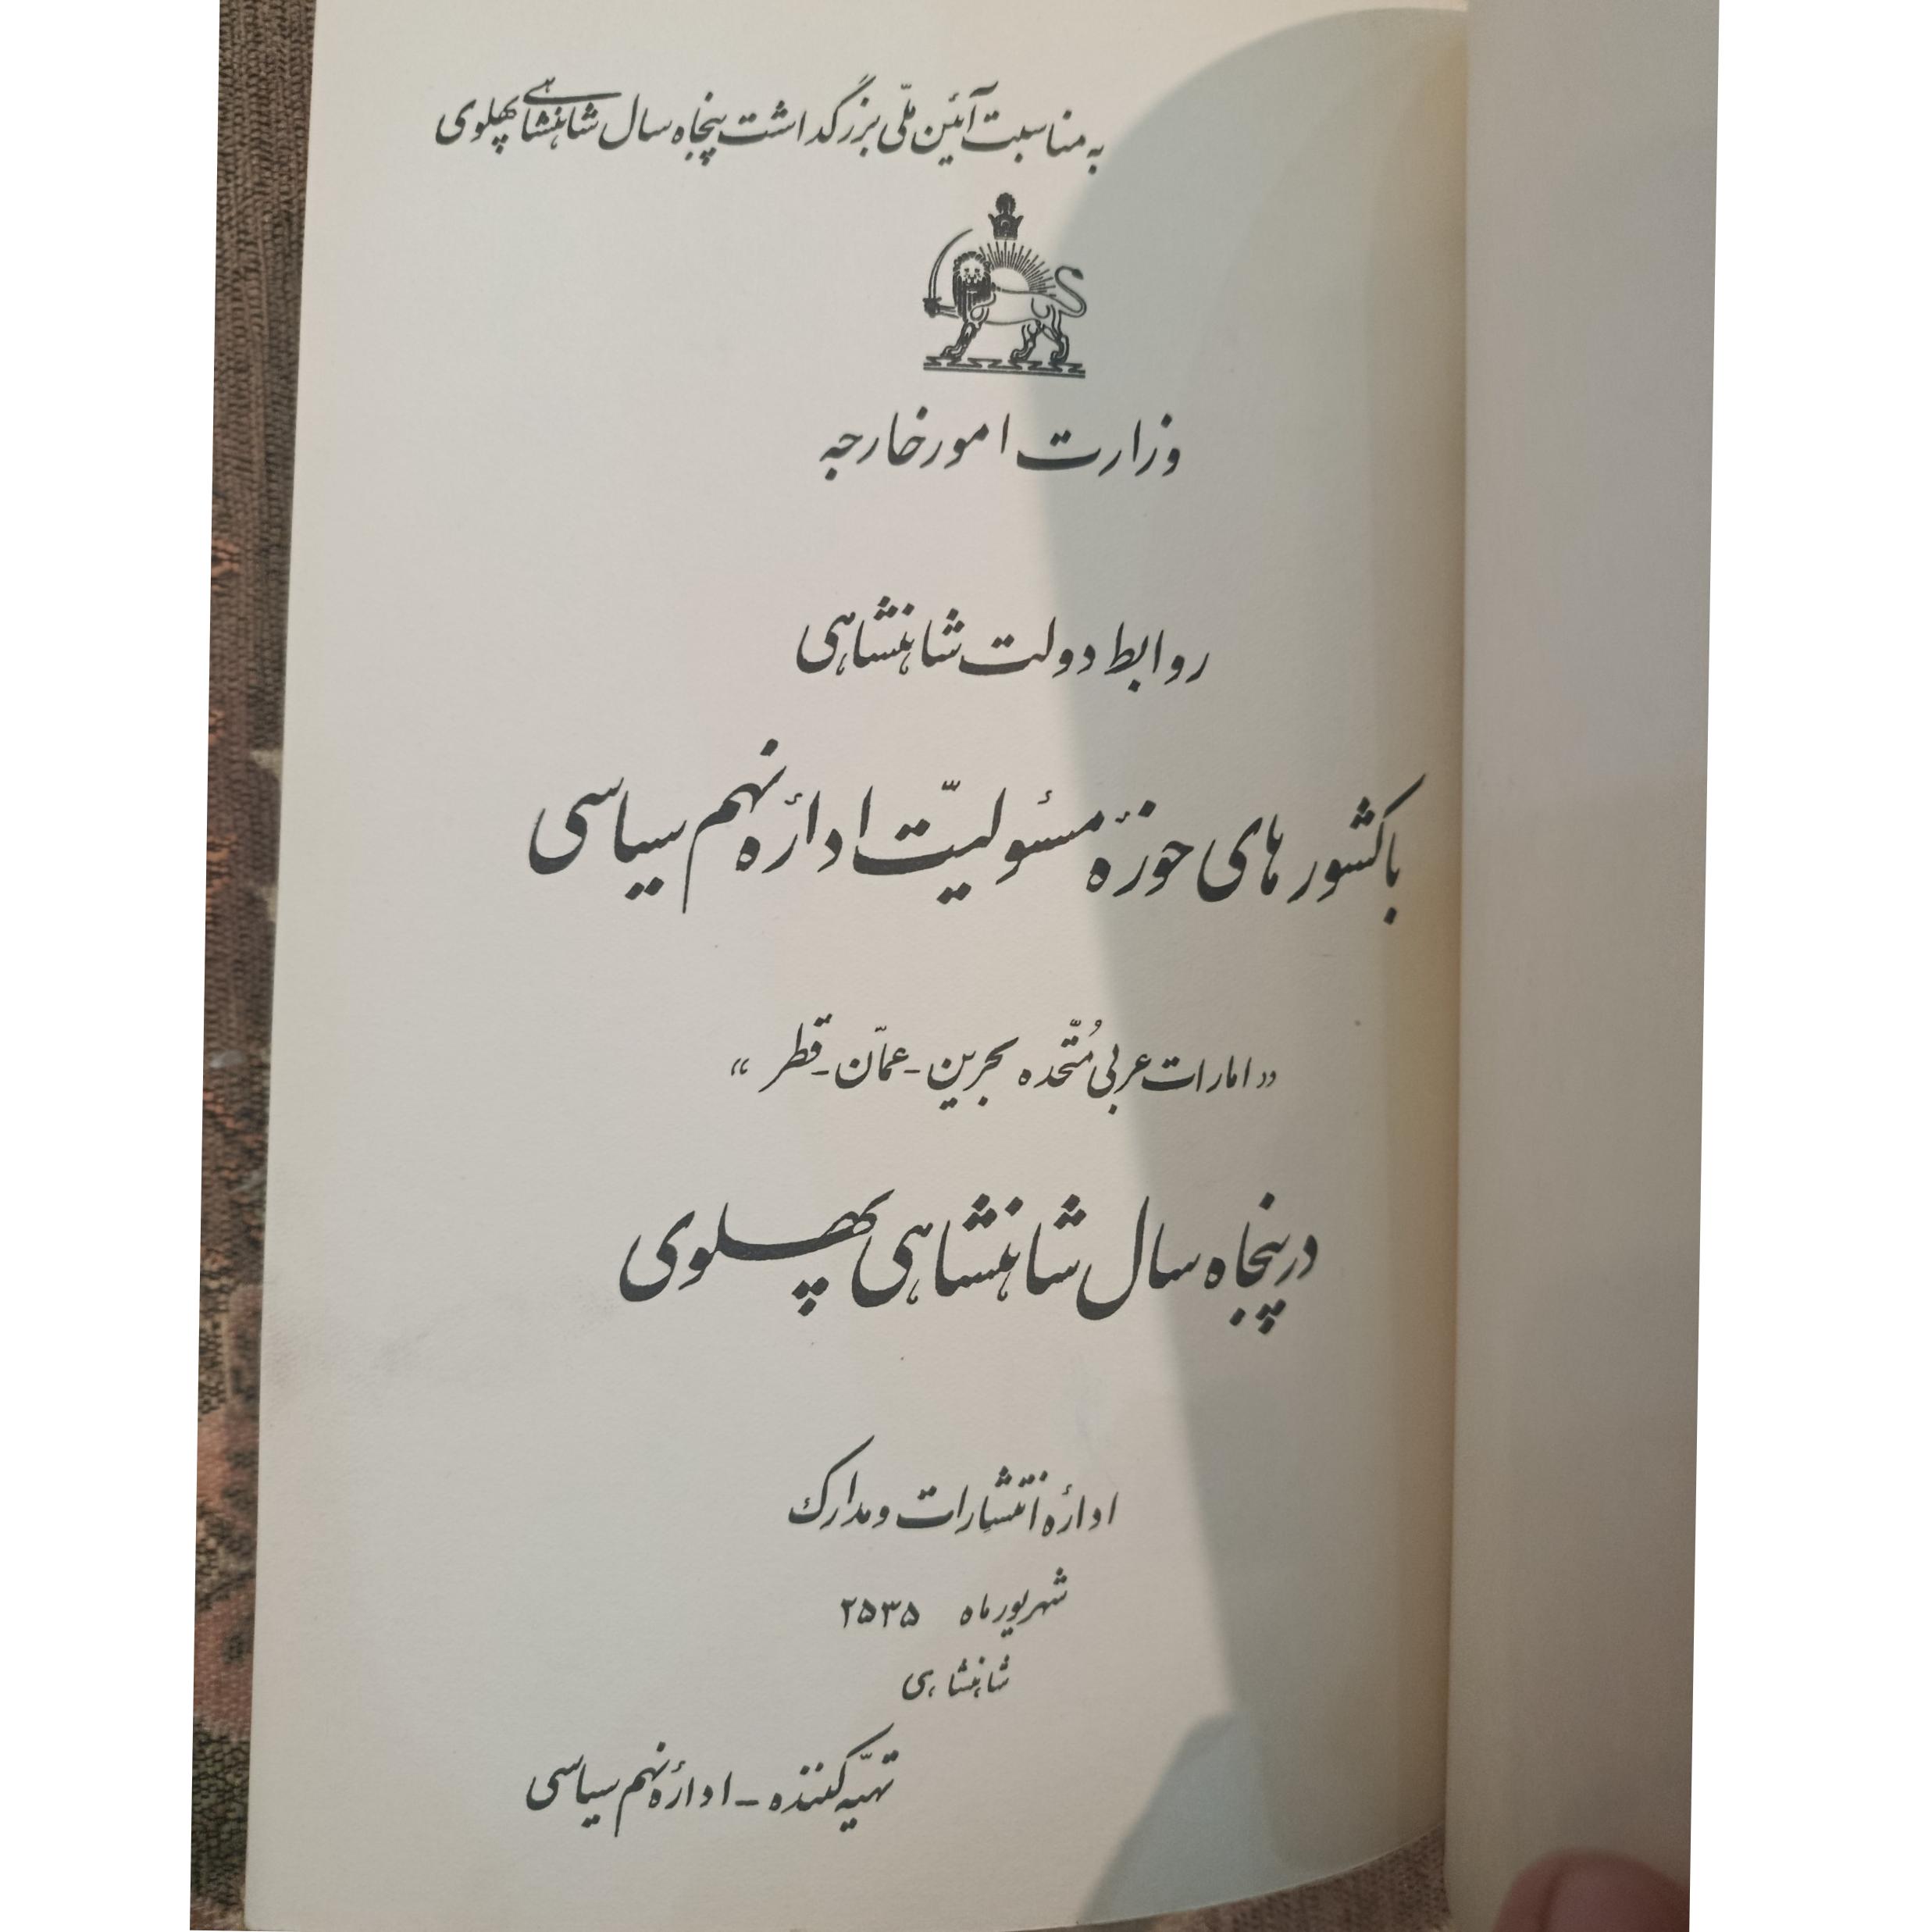 به مناسبت آئین ملّی بزرگداشت پنجاه سال شاهنشاهی پهلوی
وزارت امور خارجه
روابط دولت شاهنشاهی
با کشور های حوزهٔ مسئولیّت ادارهٔ نهم سیاسی
«امارات عربی مُتّحده بحرین - عمّان - قطر»
در پنجاه سال شاهنشاهی پهلوی
ادارهٔ انتشارات و مدارک
شهریور ماه ۲۵۳۵
شاهنشاهی
تهیّه کننده - ادارهٔ نهم سیاسی